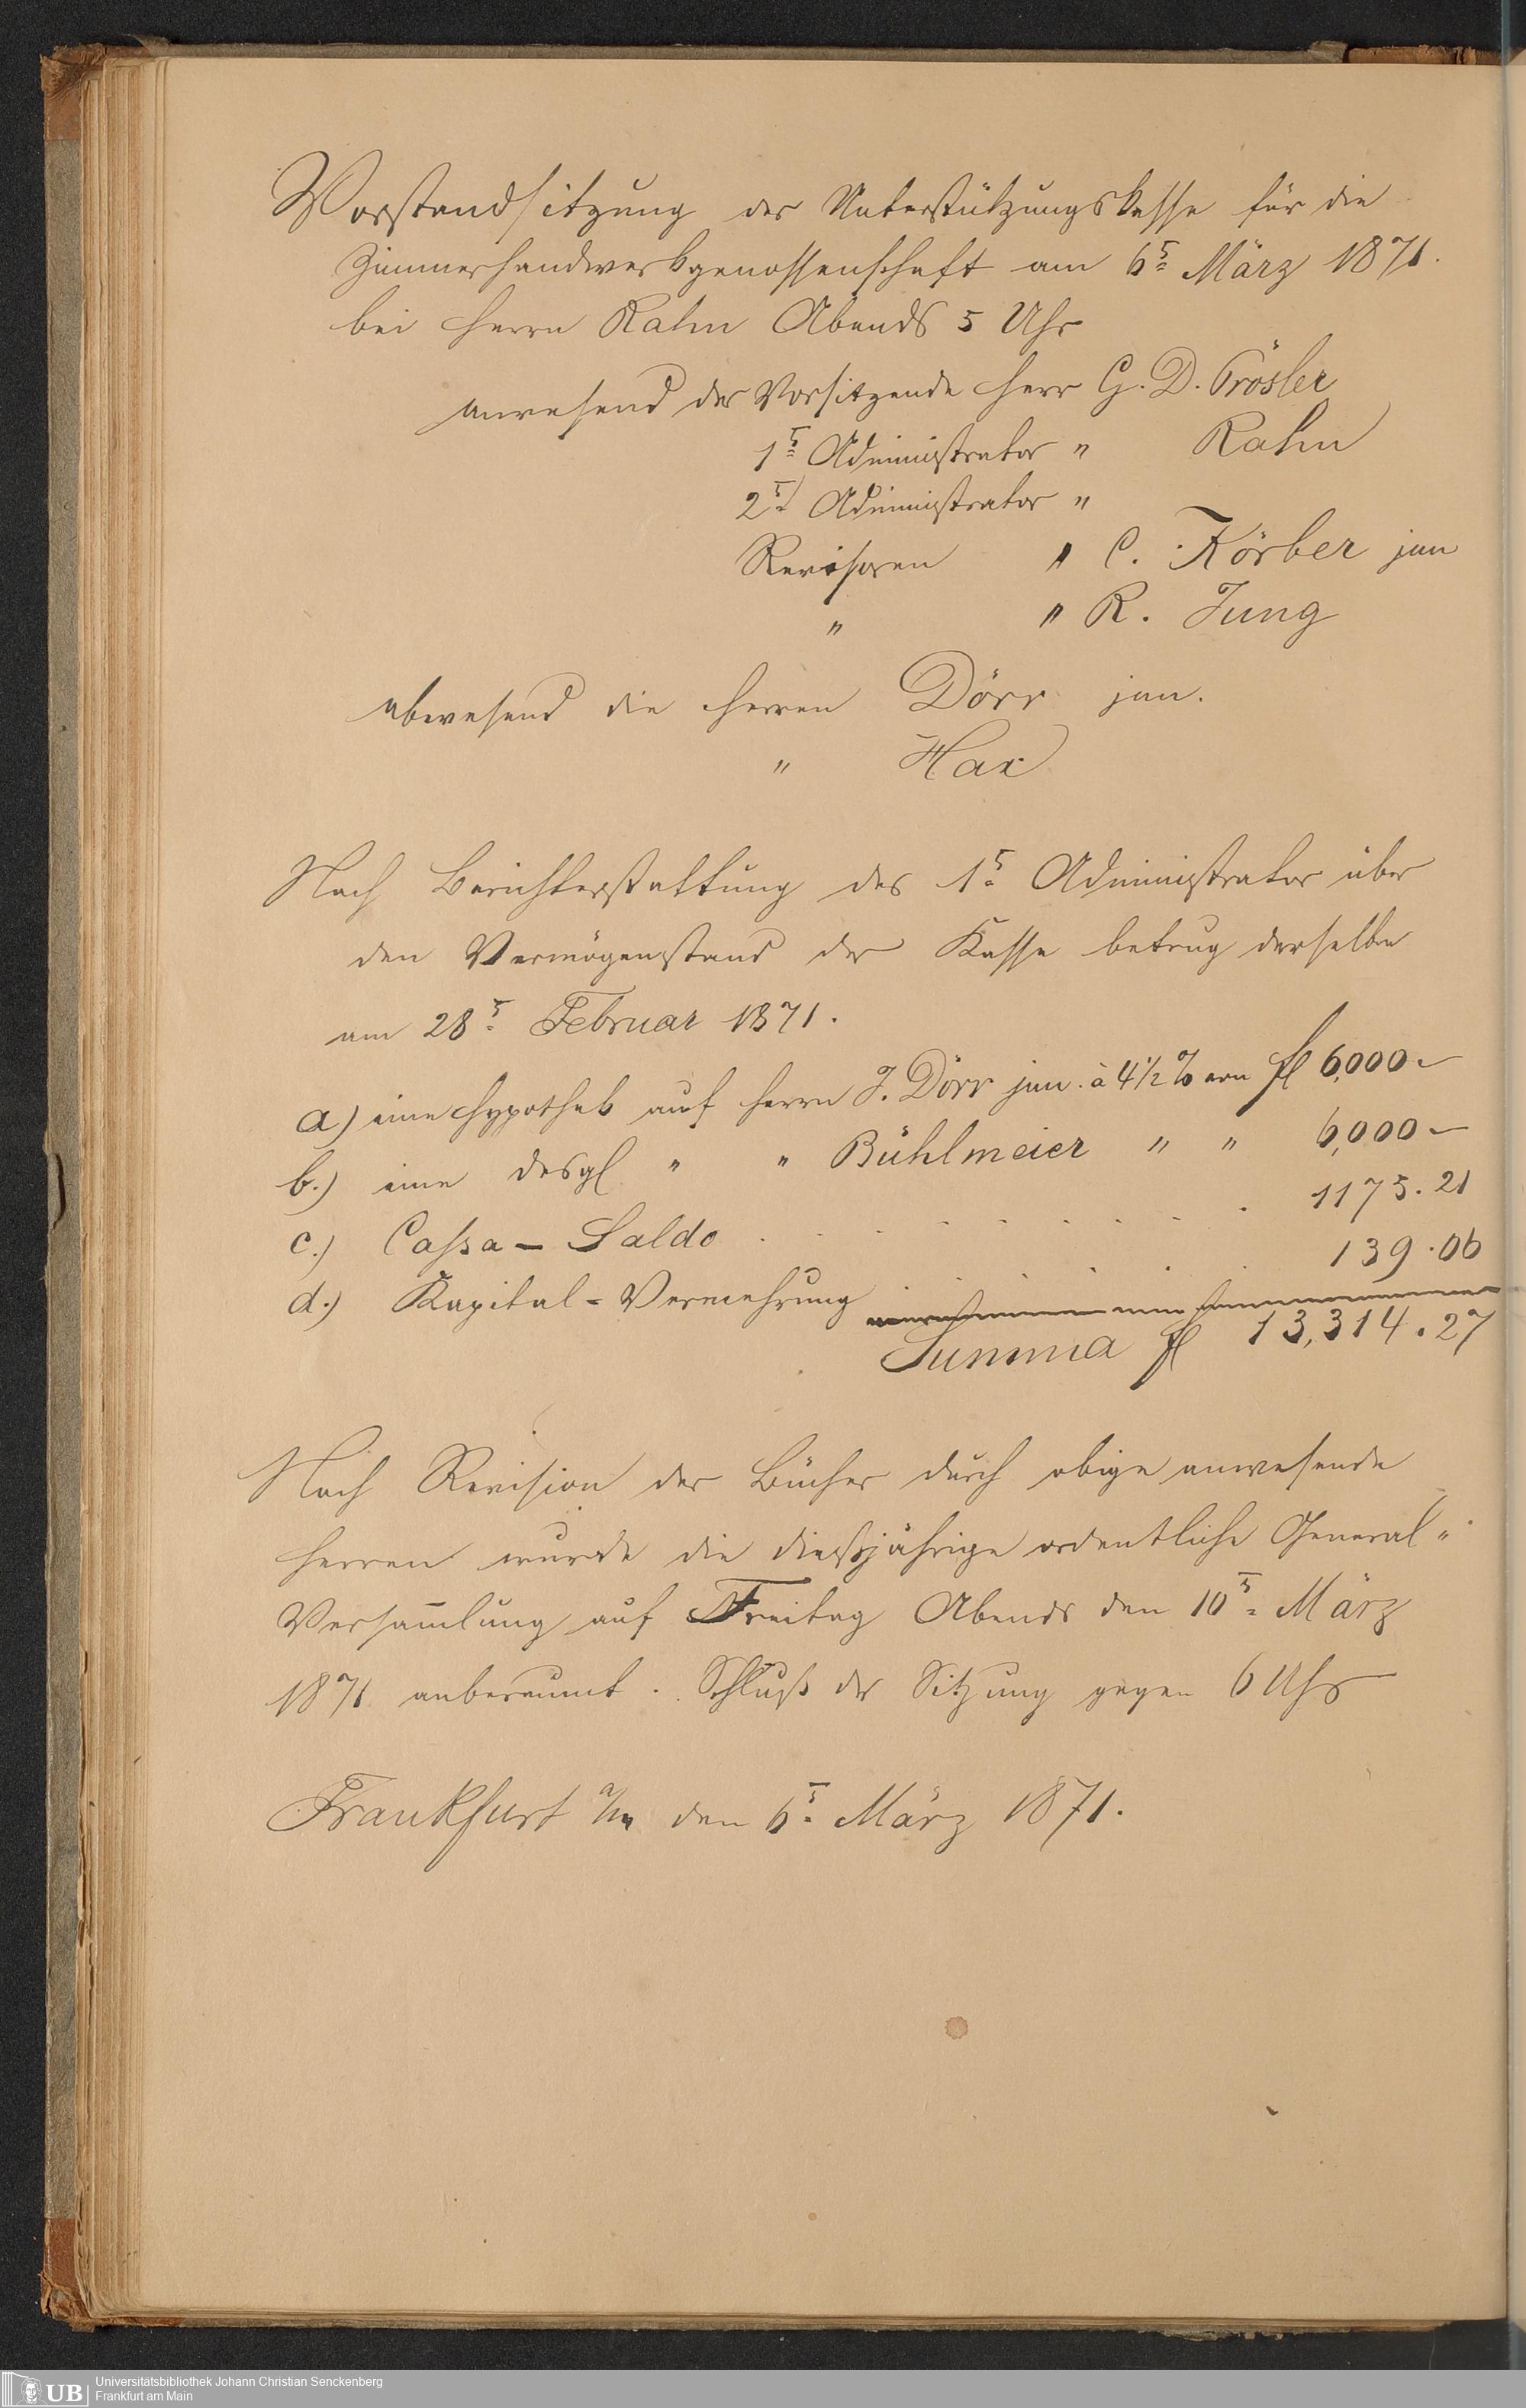 Vorstandsitzung der Unterstützungskasse für die
Zimmerhandwerkgenossenschaft am 6t März 1871.
bei Herrn Rahm Abends 5 Uhr
anwesend der Vorsitzende Herr G. D. Prösler
1t Administrator " Rahm
2t Administrator "
Revisoren " C. Körber jun
" " R. Jung
abwesend die Herren Dörr jun.
" Hax
Nach Berichterstattung des 1t Administrator über
den Vermögenstand der Kasse betrug derselbe
am 28t Februar 1871.
a) eine Hypothek auf Herrn J. Dörr jun. à 4 1/2 % von fl 6,000 –
b.) eine desgl " " Bühlmeier " " 6,000 –
c.) Cassa – Saldo . . . . . . . . 1175. 21
d.) Kapital = Vermehrung . . . . . . 139. 06
Summa fl 13,314. 27
Nach Revision der Bücher durch obige anwesende
Herren wurde die dießjährige ordentliche General „
Versam̄lung auf Freitag Abends den 10t März
1871 anberaumt. Schluß der Sitzung gegen 6 Uhr
Frankfurt a/m den 6t März 1871.
UB
Universitätsbibliothek Johann Christian Senckenberg
Frankfurt am Main